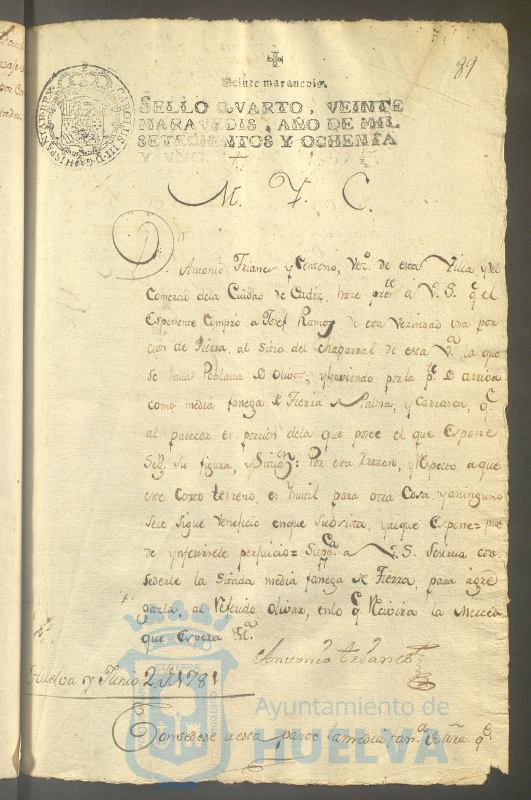 89
Veinte maravedis.
SELLO QVARTO, VEINTE
MARAVEDIS, AÑO DE MIL
SETECIENTOS Y OCHENTA
Y VNO.
CAROLUS III D.G. HISPANIAR. REX
M. Y. C.
Dn. Antonio Trianes y Centeno, Vezo. de esta Villa y del
Comercio dela Ciudad de Cadiz, haze preste. a V. S. qe. el
Esponente Compro a Josef Ramos de esta Vezindad una por
cion de Tierra, al sitio del chaparral de esta Va. la que
se halla Poblada de olivos, y haviendo por la pte. de arriva
como media fanega de Tierra de Palma, y Carrasca, qe.
al parecer es porcion dela que posee el que Espone
segn. su figura, y Situon: Por esta Razon, y Respecto a que
este Corto terreno, es Inutil para otra Cosa, y a ninguno
sele sigue Veneficio en que subsista, y al que Espone pue
de ynferirsele perjuicio = Suppca. a V. S. se sirva con
sederle la Sitada media fanega de Tierra, para agre
garla, al Referido Olivar, en lo qe. Recivira la Merced
que Espera Va.
Antonio Trianes
Huelva y Junio 2 de 1781
Consedese a esta parte la media fana. de tierra qe.
Ayuntamiento de
HUELVA